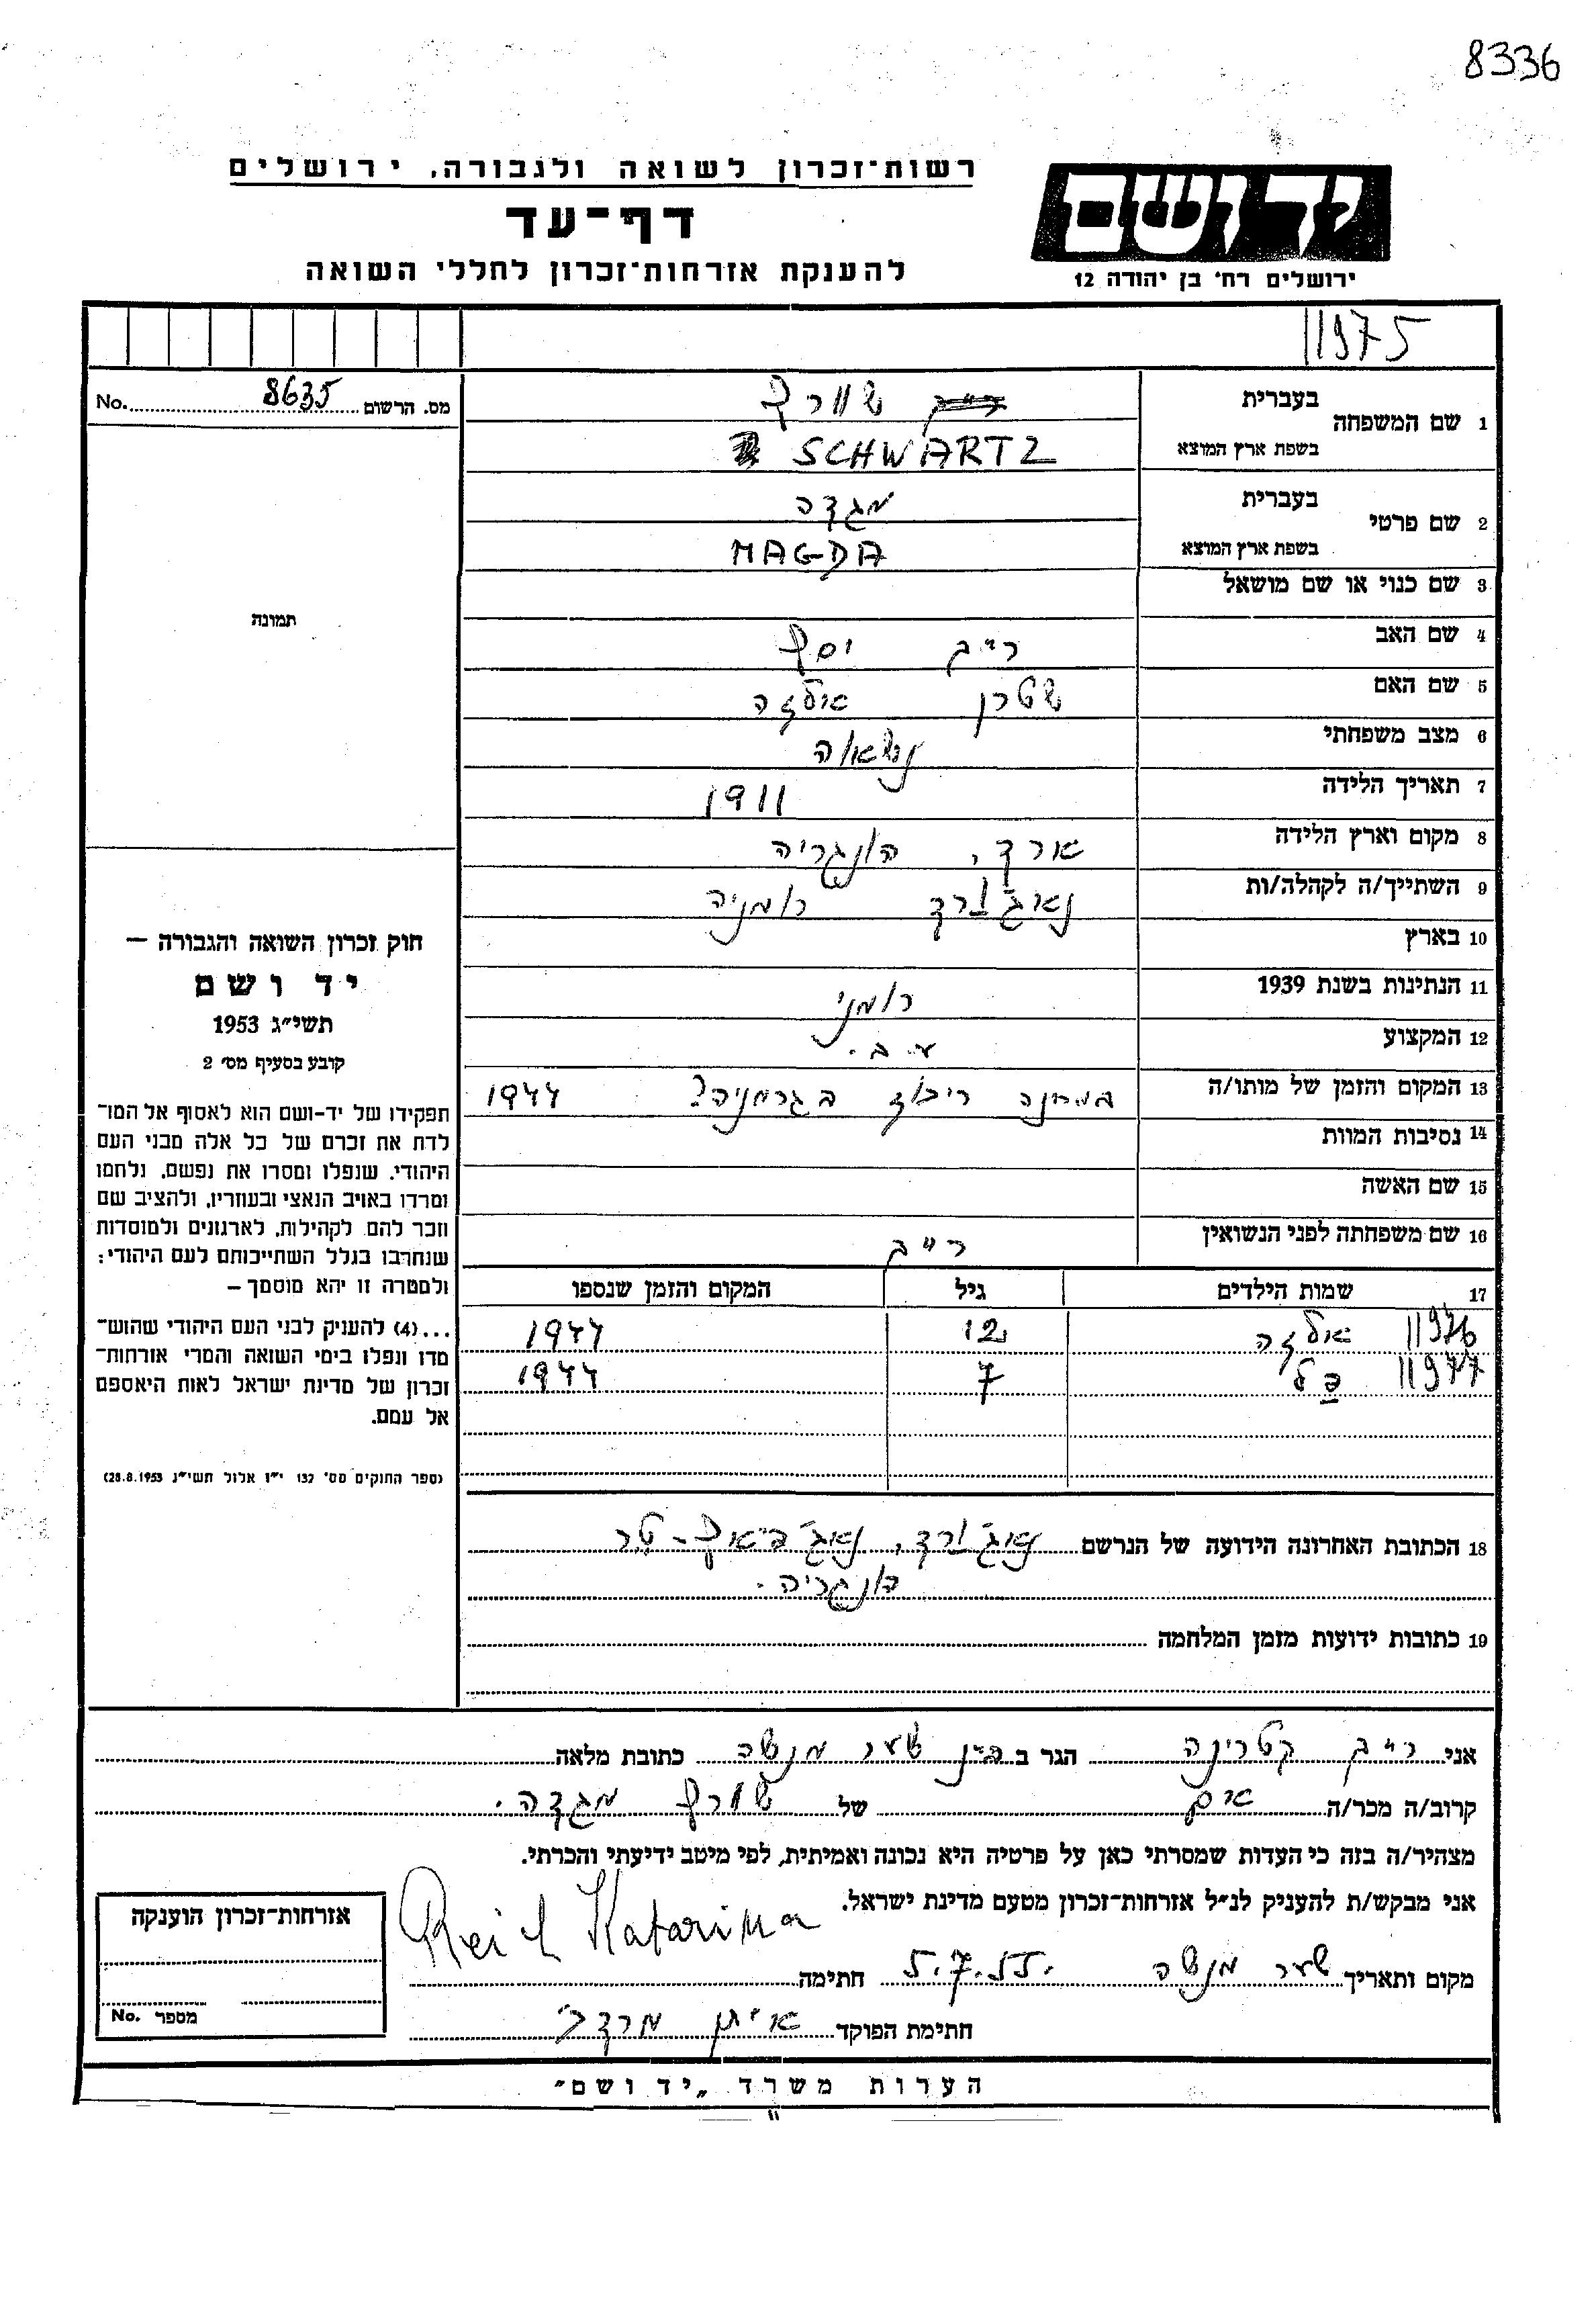 8336
רשות־זכרון לשואה ולגבורה, ירושלים
דף־עד
להענקת אזרחות־זכרון לחללי השואה
יד ושם
ירושלים רח' בן יהודה 12
11975
מס. הרשום 8635 No.
1 שם המשפחה בעברית שוורץ
בשפת ארץ המוצא SCHWARTZ
2 שם פרטי בעברית מגדה
בשפת ארץ המוצא MAGDA
3 שם כנוי או שם מושאל
4 שם האב רייך יוסף
5 שם האם שטרן אלזה
6 מצב משפחתי נשואה
7 תאריך הלידה 1911
8 מקום וארץ הלידה ארד, הונגריה
9 השתייך/ה לקהלה/ות רומניה
10 בארץ
11 הנתינות בשנת 1939 רומני
12 המקצוע ע.ב.
13 המקום והזמן של מותו/ה במחנה ריכוז בגרמניה? 1944
14 נסיבות המוות
15 שם האשה
16 שם משפחתה לפני הנשואין רייך
17 שמות הילדים גיל המקום והזמן שנספו
11976 אלזה 12 1944
11977 7 1944
תמונה
חוק זכרון השואה והגבורה –
יד ושם
תשי״ג 1953
קובע בסעיף מס׳ 2
תפקידו של יד-ושם הוא לאסוף אל המו־
לדת את זכרם של כל אלה מבני העם
היהודי, שנפלו ומסרו את נפשם, נלחמו
ומרדו באויב הנאצי ובעוזריו, ולהציב שם
וזכר להם, לקהילות, לארגונים ולמוסדות
שנחרבו בגלל השתייכותם לעם היהודי;
ולמטרה זו יהא מוסמך –
...(4) להעניק לבני העם היהודי שהוש־
מדו ונפלו בימי השואה והמרי אזרחות־
זכרון של מדינת ישראל לאות היאספם
אל עמם.
(ספר החוקים מס׳ 132 י״ז אלול תשי״ג 28.8.1953)
18 הכתובת האחרונה הידועה של הנרשם
הונגריה.
19 כתובות ידועות מזמן המלחמה
אני רייך קטרינה הגר ב שער מנשה כתובת מלאה
קרוב/ה מכר/ה אם של שוורץ מגדה.
מצהיר/ה בזה כי העדות שמסרתי כאן על פרטיה היא נכונה ואמיתית, לפי מיטב ידיעתי והכרתי.
אני מבקש/ת להעניק לנ״ל אזרחות־זכרון מטעם מדינת ישראל.
מקום ותאריך שער מנשה 5.7.55. חתימה Reich Katarina
חתימת הפוקד איתן מרדכי
אזרחות־זכרון הוענקה
מספר No.
הערות משרד „יד ושם״